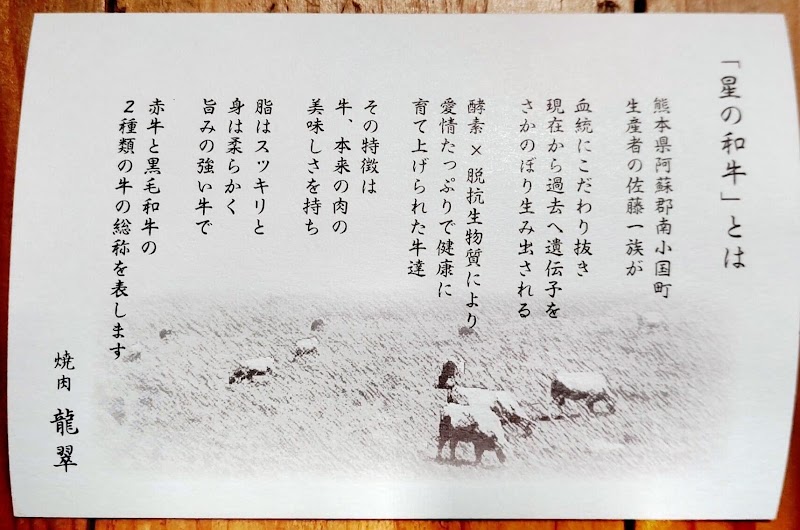 「星の和牛」とは
熊本県阿蘇郡南小国町
生産者の佐藤一族が
血統にこだわり抜き
現在から過去へ遺伝子を
さかのぼり生み出される
酵素×脱抗生物質により
愛情たっぷりで健康に
育て上げられた牛達
その特徴は
牛、本来の肉の
美味しさを持ち
脂はスッキリと
身は柔らかく
旨みの強い牛で
赤牛と黒毛和牛の
2種類の牛の総称を表します
焼肉 龍翠